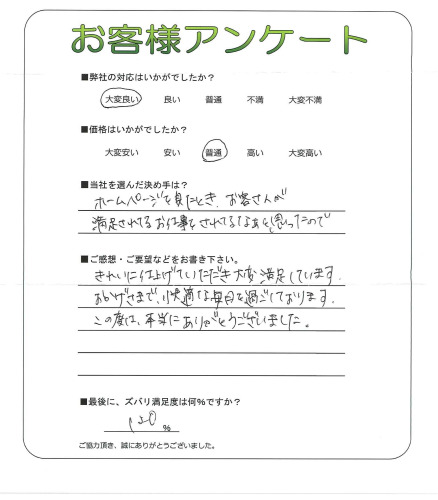 お客様アンケート
■弊社の対応はいかがでしたか?
大変良い 良い 普通 不満 大変不満
■価格はいかがでしたか?
大変安い 安い 普通 高い 大変高い
■当社を選んだ決め手は?
ホームページを見たとき、お客さんが
満足されてるお仕事をされてるなぁと思ったので
■ご感想・ご要望などをお書き下さい。
きれいに仕上げていただき大変満足しています。
おかげさまで、快適な毎日を過ごしております。
この度は、本当にありがとうございました。
■最後に、ズバリ満足度は何%ですか?
%
ご協力頂き、誠にありがとうございました。